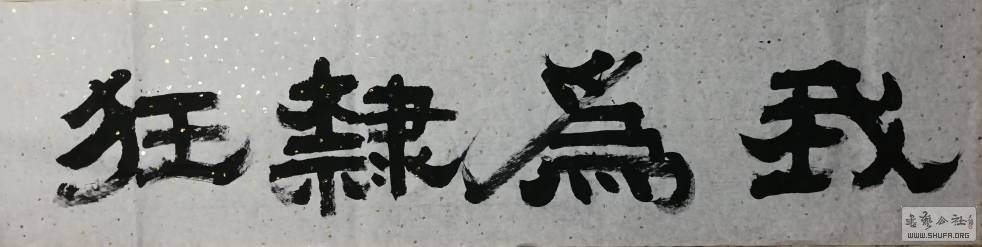 我為隸狂
書藝公社
WWW.SHUFA.ORG